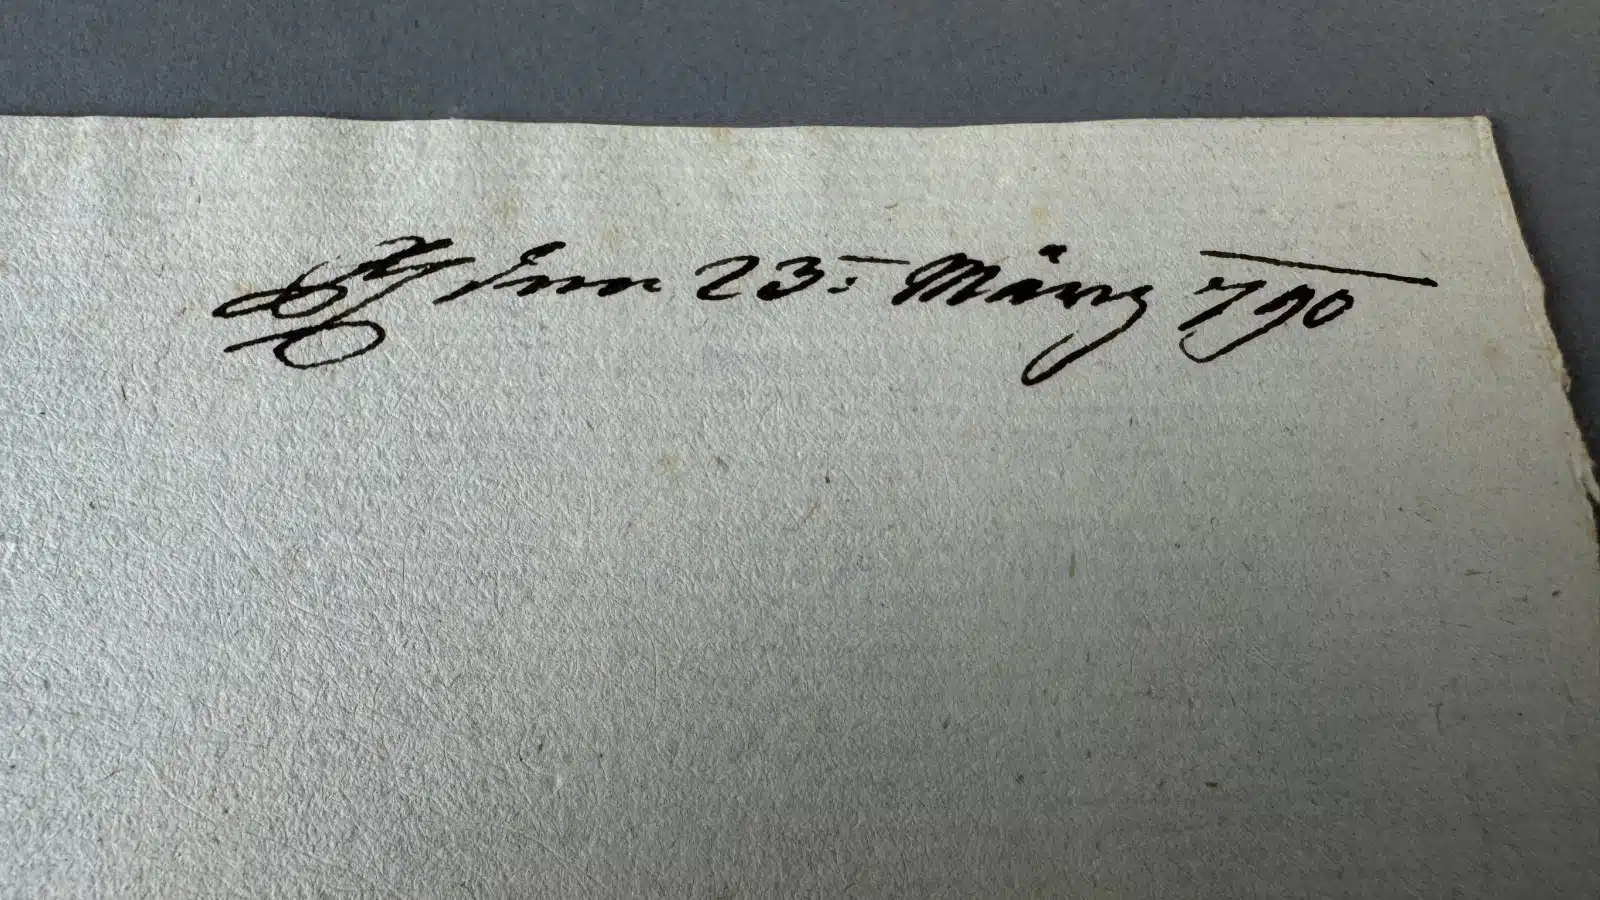 den 23: März 790